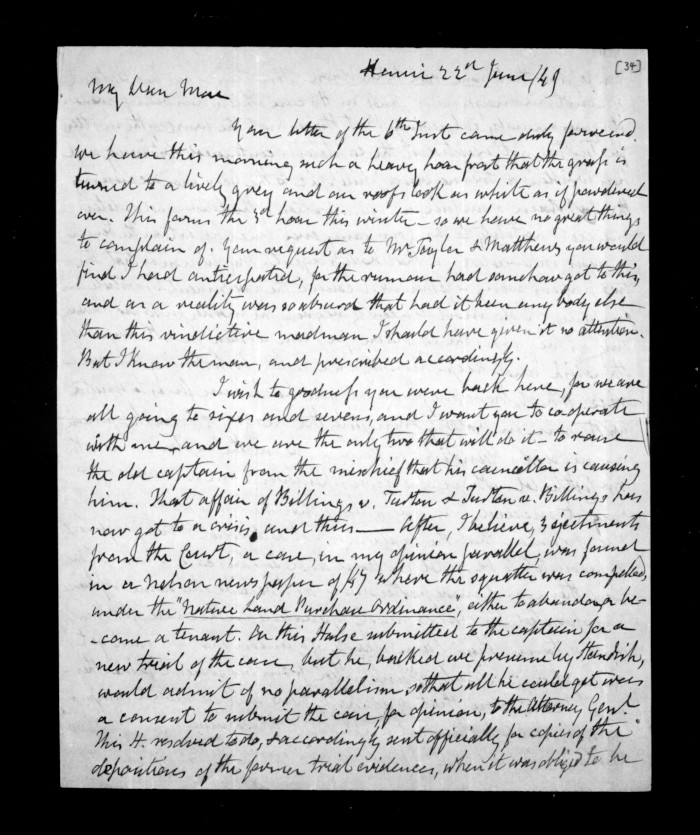 Henui 22nd June/49
[34]
My Dear Mac
Your letter of the 6th Inst came duly forward.
We have this morning such a heavy hoar frost that the grass is
turned to a lively grey and our roofs look as white as if powdered
over. This forms the 3d hoar this winter - so we have no great things
to complain of. Your request as to Mr Taylor & Matthews you would
find I had anticipated, for the rumour had somehow got to this,
and as a reality was so absurd that had it been any body else
than this vindictive madman, I should have given it no attention.
But I know the man, and prescribed accordingly.
I wish to goodness you were back here, for we are
all going to sixes and sevens, and I want you to co-operate
with me, and we are the only two that will do it - to rouse
the old captain from the mischief that his councillor is causing
him. That affair of Billings v. Turton & Turton v. Billings has
now got to a crisis, and thus — After, I believe, 3 ejectments
from the Court, a case, in my opinion parallel, was found
in a Nelson newspaper of /47 where the squatter was compelled,
under the "Native Land Purchase Ordinance", either to abandon or be-
-come a tenant. On this Halse submitted to the captain for a
new trial of the case, but he, backed we presume by Standish,
would admit of no parallelism, so that all he could get was
a consent to submit the case, for opinion, to the Attorney Genl.
This H. resolved to do, & accordingly sent officially for copies of the
depositions of the former trial evidences, when it was obliged to be